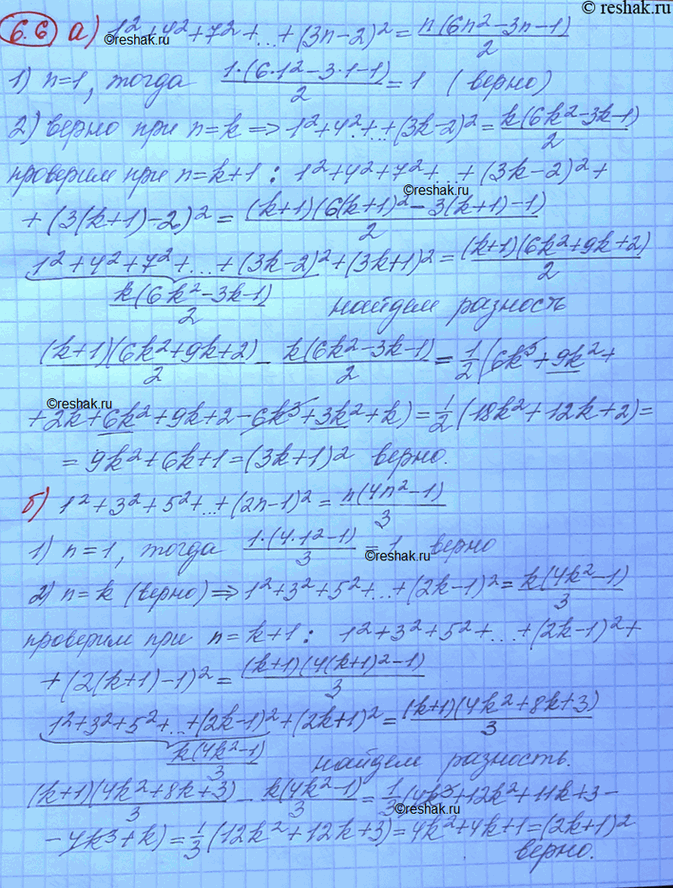 © reshak.ru
6.6 а) 1²+4²+7²+...+(3n-2)² = n(6n²-3n-1)/2
©reshak.ru
1) n=1, тогда 1·(6·1²-3·1-1)/2 = 1 (верно)
2) верно при n=k ⇒ 1²+4²+...+(3k-2)² = k(6k²-3k-1)/2
проверим при n=k+1: 1²+4²+7²+...+(3k-2)²+
©reshak.ru
+(3(k+1)-2)² = (k+1)(6(k+1)²-3(k+1)-1)/2
1²+4²+7²+...+(3k-2)²+(3k+1)² = (k+1)(6k²+9k+2)/2
k(6k²-3k-1)/2 найдем разность
(k+1)(6k²+9k+2)/2 - k(6k²-3k-1)/2 = 1/2(6k³+9k²+
©reshak.ru
+2k+6k²+9k+2-6k³+3k²+k) = 1/2(18k²+12k+2)=
= 9k²+6k+1=(3k+1)² верно.
б) 1²+3²+5²+...+(2n-1)² = n(4n²-1)/3
1) n=1, тогда 1·(4·1²-1)/3 = 1 верно
©reshak.ru
2) n=k (верно) ⇒ 1²+3²+5²+...+(2k-1)² = k(4k²-1)/3
проверим при n=k+1: 1²+3²+5²+...+(2k-1)²+
+(2(k+1)-1)² = (k+1)(4(k+1)²-1)/3
1²+3²+5²+...+(2k-1)²+(2k+1)² = (k+1)(4k²+8k+3)/3
k(4k²-1)/3 найдем разность.
(k+1)(4k²+8k+3)/3 - k(4k²-1)/3 = 1/3(4k³+12k²+11k+3-
©reshak.ru
-4k³+k) = 1/3(12k²+12k+3)=4k²+4k+1=(2k+1)²
верно.